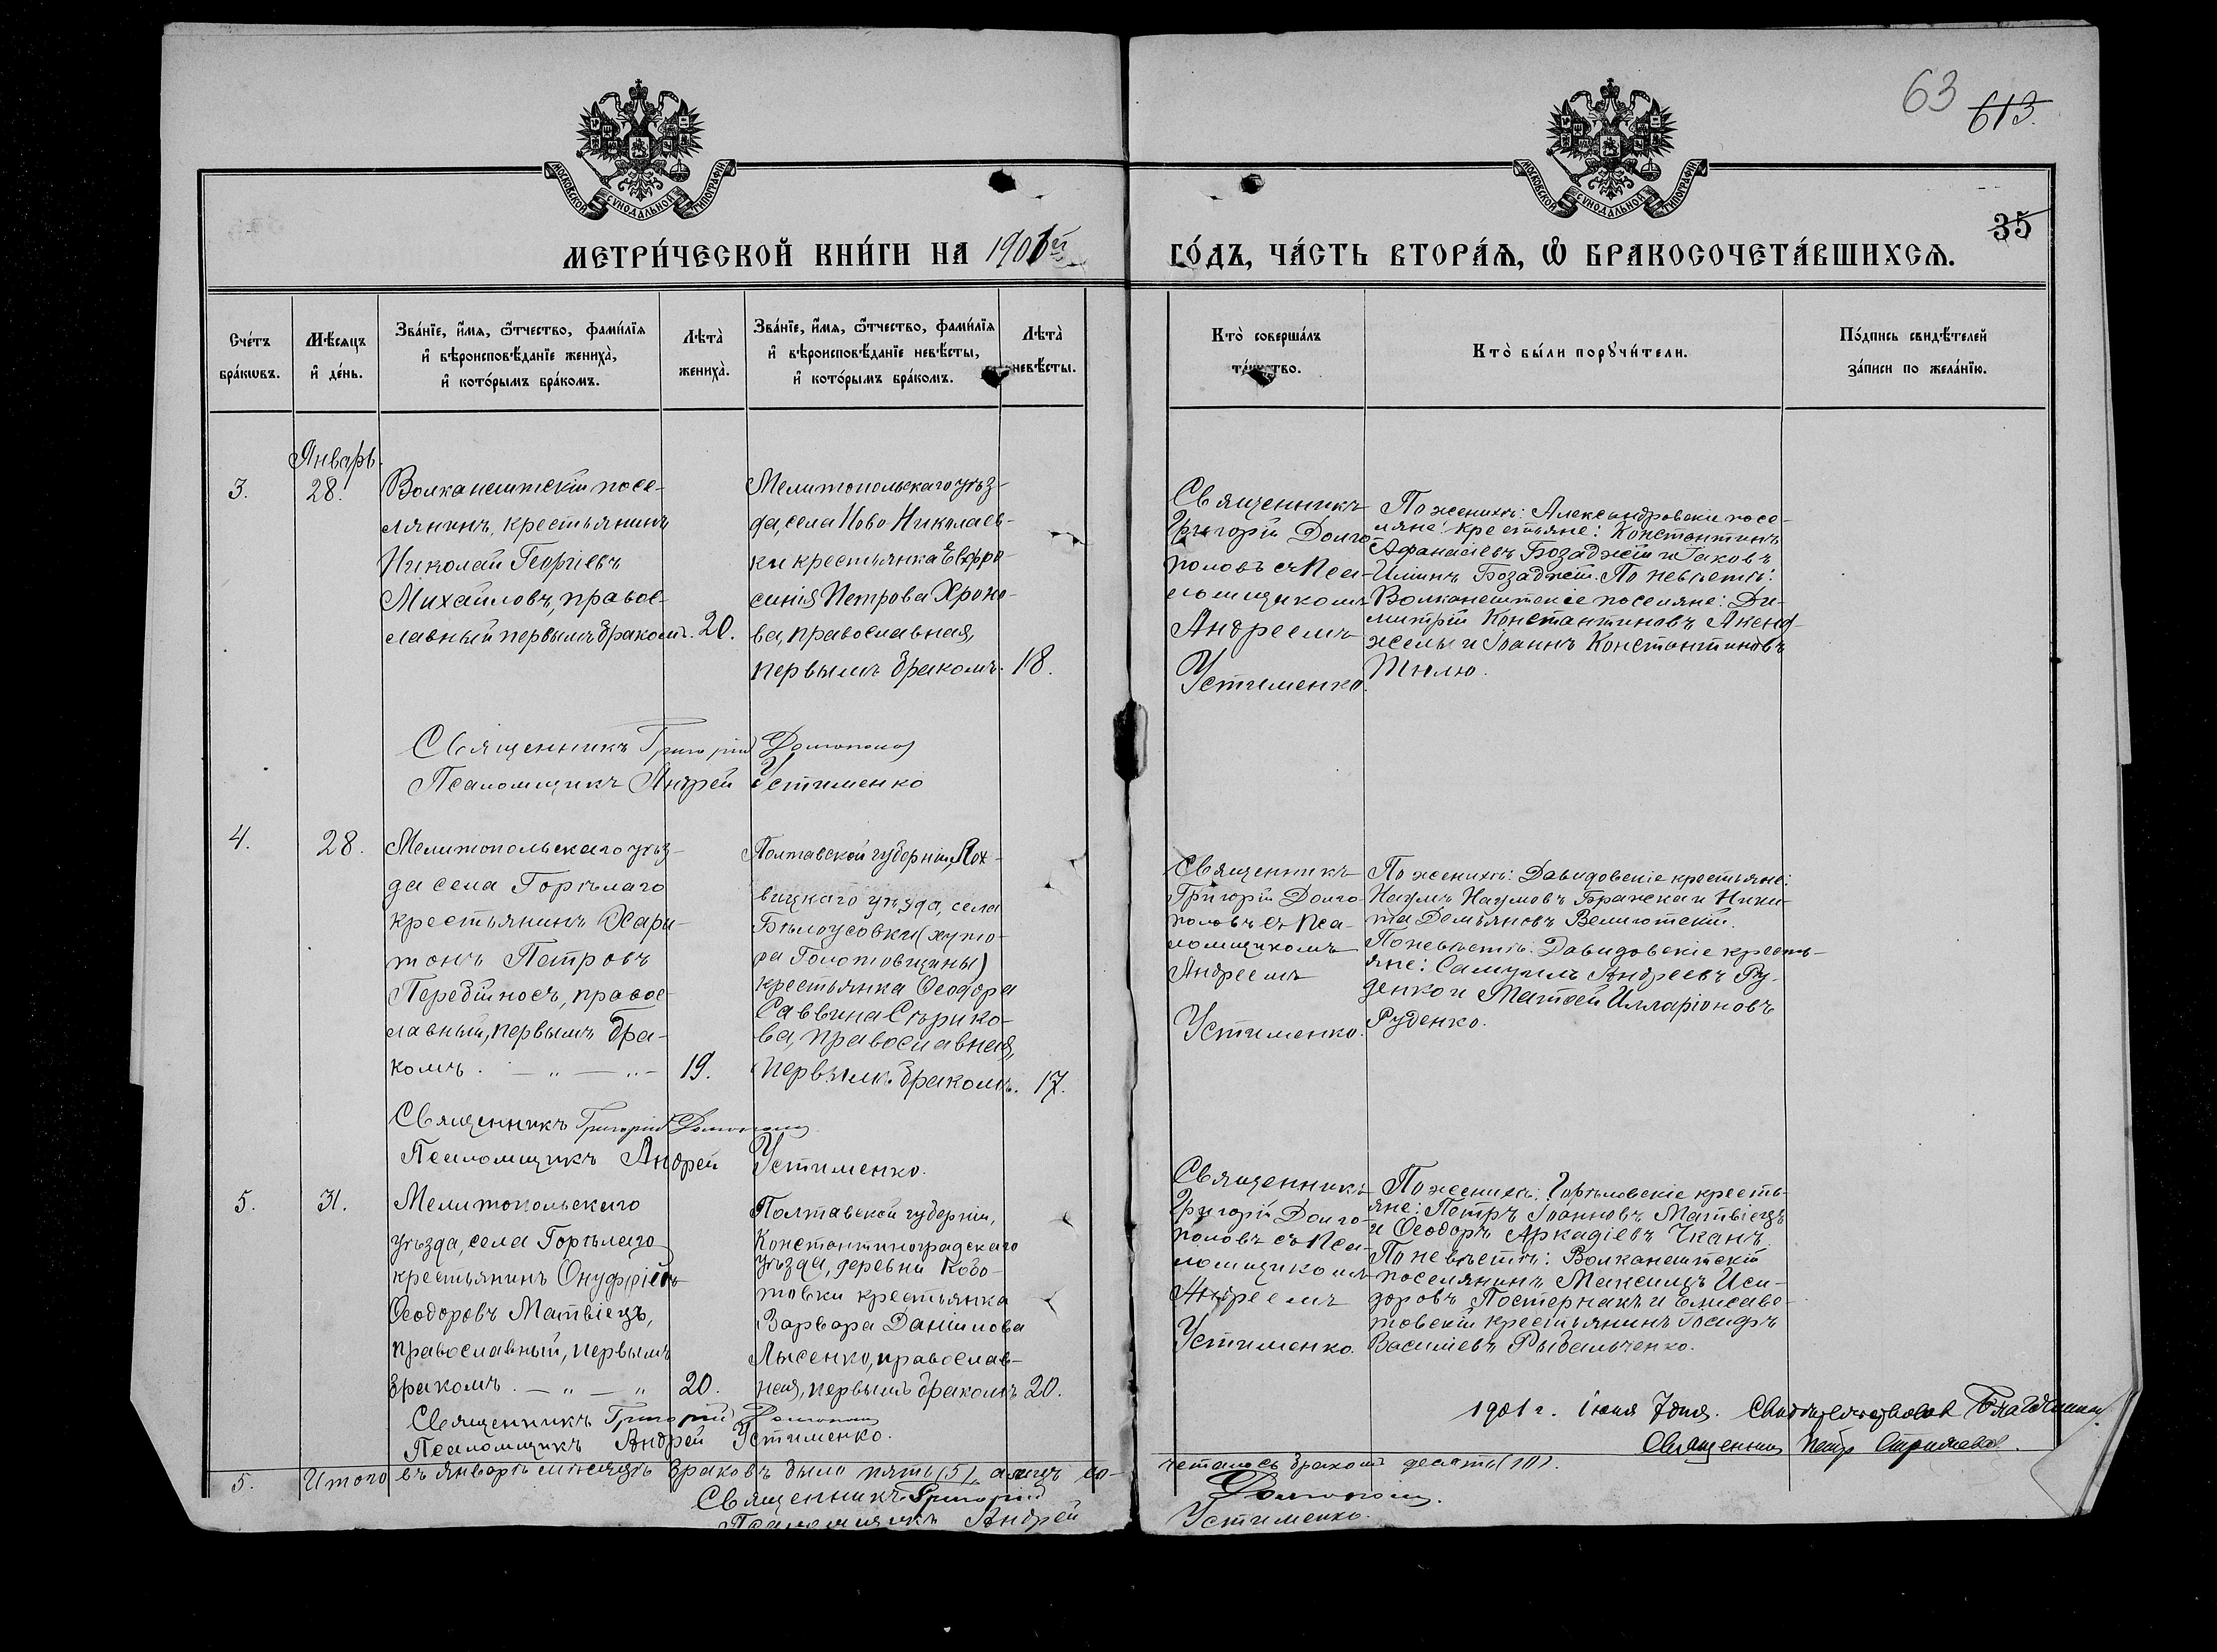 63 613.
МОСКОВСКОЙ СѴНОДАЛЬНОЙ ТИПОГРАФІИ
МОСКОВСКОЙ СѴНОДАЛЬНОЙ ТИПОГРАФІИ
35
МЕТРИ́ЧЕСКОЙ КНИ́ГИ НА 1901ый
ГО́ДЪ, ЧА́СТЬ ВТОРА́Я, Ѡ БРАКОСОЧЕТА́ВШИХСЯ.
Сче́тъ
бра́кѡвъ.
Мѣ́сяцъ
и҆ де́нь.
Зва́нїе, и҆́мя, ѻ҆́тчество, фами́лїя
и҆ вѣроисповѣ́данїе жениха̀,
и҆ кото́рымъ бра́комъ.
Лѣта̀
жениха̀.
Зва́нїе, и҆́мя, ѻ҆́тчество, фами́лїя
и҆ вѣроисповѣ́данїе невѣ́сты,
и҆ кото́рымъ бра́комъ.
Лѣта̀
невѣ́сты.
Кто̀ соверша́лъ
та́инство.
Кто̀ бы́ли порꙋчи́тели.
По́дпись свидѣ́телей
за́писи по жела́нїю.
Январь.
3.
28.
Волканештскій посе-
лянинъ, крестьянинъ
Николай Георгіевъ
Михайловъ, правос-
лавный первымъ бракомъ.
20.
Мелитопольскаго уѣз-
да, села Ново Николаев-
ки крестьянка Евфро-
синія Петрова Хроно-
ва, православная,
первымъ бракомъ.
18.
Священникъ
Григорій Долго-
половъ съ Пса-
ломщикомъ
Андреемъ
Устименко.
По женихѣ: Александровскіе посе-
ляне: крестьяне: Константинъ
Афанасіевъ Бозаджій и Іаковъ
Илиинъ Бозаджій. По невѣстѣ:
Волканештскіе поселяне: Ди-
митрій Константиновъ Акенд-
желы и Іоаннъ Константиновъ
Тнлю.
Священникъ Григорій Долгопол
Псаломщикъ Андрей Устименко
4.
28.
Мелитопольскаго уѣз-
да села Горѣлаго
крестьянинъ Хари-
тонъ Петровъ
Перебійносъ, правос-
лавный, первымъ бра-
комъ. — „ — „ —
19.
Полтавской губерніи, Лох-
вицкаго уѣзда, села
Бѣлоусовки (хуто-
ра Голотовщины)
крестьянка Ѳеодора
Саввина Сѣрико-
ва, православная,
первымъ бракомъ.
17.
Священникъ
Григорій Долго-
половъ съ Пса-
ломщикомъ
Андреемъ
Устименко.
По женихѣ: Давидовскіе крестьяне:
Наумъ Наумовъ Бражка и Ники-
та Демьяновъ Велиготскій.
По невѣстѣ: Давидовскіе кресть-
яне: Самуилъ Андреевъ Ру-
денко и Матѳей Илларіоновъ
Руденко.
Священникъ Григорій Долгопол
Псаломщикъ Андрей Устименко.
5.
31.
Мелитопольскаго
уѣзда, села Горѣлаго
крестьянинъ Онуфрій
Ѳеодоровъ Матвіецъ,
православный, первымъ
бракомъ. — „ — „
20.
Полтавской губерніи,
Константиноградскаго
уѣзда, деревни Кобо-
товки крестьянка
Варвара Даніилова
Лысенко, православ-
ная, первымъ бракомъ
20.
Священникъ
Григорій Долго-
половъ съ Пса-
ломщикомъ
Андреемъ
Устименко.
По женихѣ: Горѣловскіе кресть-
яне: Петръ Іоанновъ Матвіецъ
и Ѳеодоръ Аркадіевъ Чканъ.
По невѣстѣ: Волканештскій
поселянинъ Максимъ Иси-
доровъ Постернакъ и Елисаве-
товскій крестьянинъ Іосифъ
Василіевъ Рыбальченко.
Священникъ Григорій Долгопол
Псаломщикъ Андрей Устименко.
1901 г. Іюня 7 дня. Свидѣтельствовал Благочинный
Священник Петр Стрижевск
5. Итого въ январѣ мѣсяцѣ браковъ было пять (5), а лицъ со-
четалось бракомъ десять (10).
Священникъ Григорій Долгопол.
Псаломщикъ Андрей Устименко.